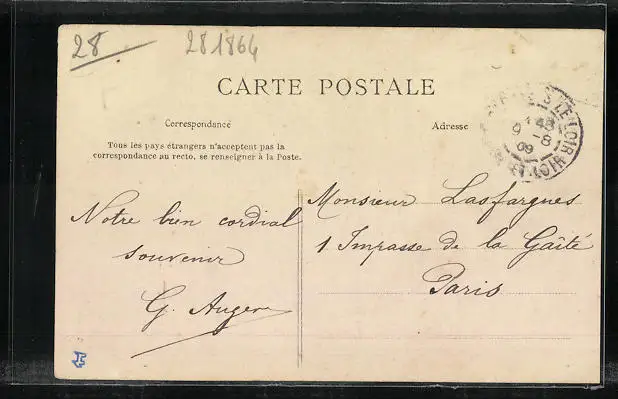 28
281864
CARTE POSTALE
Correspondance
Tous les pays étrangers n'acceptent pas la
correspondance au recto, se renseigner à la Poste.
Adresse
LE-LOIR
9 -8
09
ET-LOIR
Notre bien cordial
souvenir
G. Auger
Monsieur Lasfargues
1 Impasse de la Gaîté
Paris